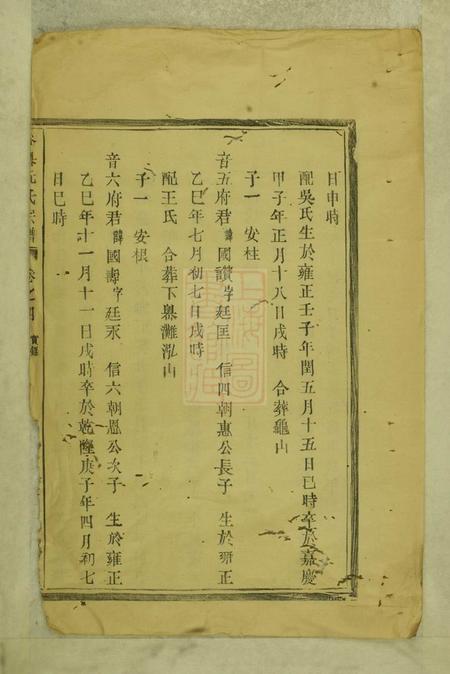 日申時
配吳氏生於雍正壬子年閏五月十五日巳時卒於嘉慶
甲子年正月十八日戌時 合葬龜山
子一 安柱
音五府君諱國讚字廷匡 信四朝惠公長子 生於雍正
乙巳年七月初七日戌時
配王氏 合葬下墺灘泓山
子一 安根
音六府君諱國壽字廷永 信六朝恩公次子 生於雍正
乙巳年十一月十一日戌時卒於乾隆庚子年四月初七
日巳時
氏宗譜 卷之四